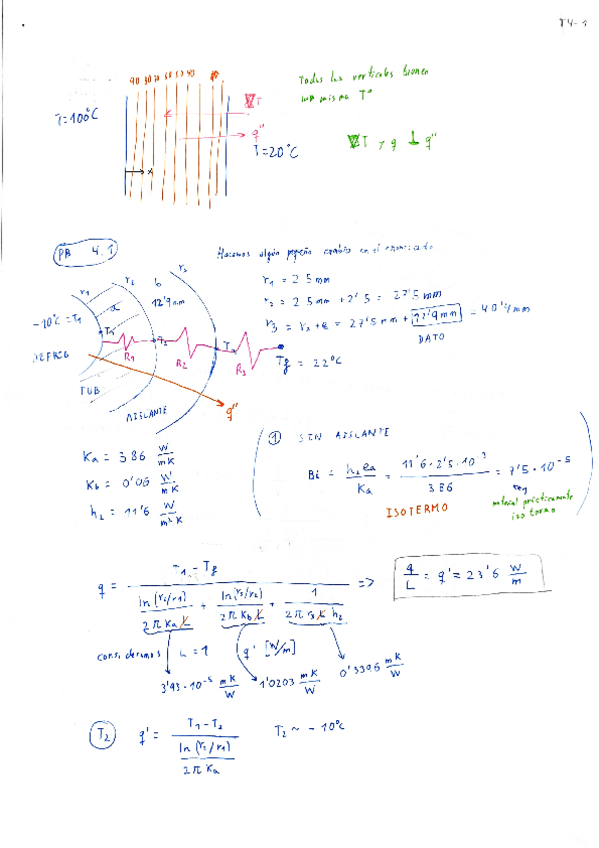 T4-1
90 80 70 60 50 40
T=100°C
∇T
q''
T=20°C
Todas las verticales tienen
una misma Tª
∇T y q ⊥ q''
PB 4.1
Hacemos algún pequeño cambio en el enunciado
r1 r2 b r3
12'9mm
a
-10°C = T1
T1 T2 T3
R1 R2 R3
REFRIG
TUB
AISLANTE
q''
r1 = 25mm
r2 = 25mm + 2'5 = 27'5mm
r3 = r2 + e = 27'5mm + 12'9mm = 40'4mm
DATO
Tf = 22°C
Ka = 386 W/mK
Kb = 0'06 W/mK
h2 = 11'6 W/m²K
① SIN AISLANTE
Bi = h2 ea / Ka = 11'6·2'5·10⁻³ / 386 = 7'5·10⁻⁵
ISOTERMO
material prácticamente
isotermo
q = (T1 - Tf) / (ln(r2/r1)/(2πKaL) + ln(r3/r2)/(2πKbL) + 1/(2πr3Lh2)) => q/L = q' = 23'6 W/m
consideramos L=1 q' [W/m]
3'93·10⁻⁵ mK/W 1'0203 mK/W 0'3396 mK/W
T2 q' = (T1 - T2) / (ln(r2/r1)/(2πKa)) T2 ~ -10°C